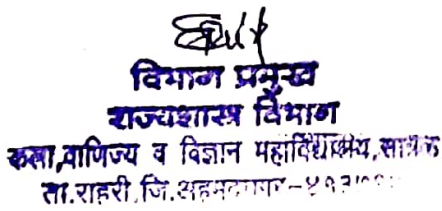 विभाग प्रमुख
राज्यशास्त्र विभाग
कला,वाणिज्य व विज्ञान महाविद्यालय,
ता.राहुरी,जि.अहमदनगर-